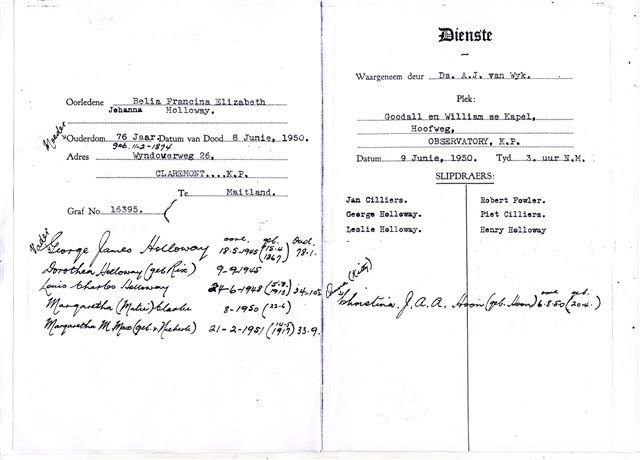 Oorledene Belia Francina Elizabeth
Johanna Holloway.
Moeder
Ouderdom 76 Jaar. Datum van Dood 8 Junie, 1950.
geb. 11-2-1874
Adres Wyndouerweg 26,
CLAREMONT....K.P.
Te Maitland.
Graf No 16395.
Vader
oorl. geb. Oud.
George James Holloway 18-5-1945 (15-4 1867) 78-1.
Dorothea Holloway (geb Rix) 9-9-1945
Louis Charles Holloway 24-6-1948
Margaretha Clarke 8-1950 (22-6)
Margaretha M. 21-2-1951 (1917) 33-9.
Dienste
Waargeneem deur Ds. A.J. van Wyk.
Plek:
Goodall en William se Kapel,
Hoofweg,
OBSERVATORY, K.P.
Datum 9 Junie, 1950. Tyd 3. uur N.M.
SLIPDRAERS:
Jan Cilliers. Robert Fowler.
George Holloway. Piet Cilliers.
Leslie Holloway. Henry Holloway
(Kitty)
oorl. geb.
Christina J.A.A. 6-8-50 (20-4.)